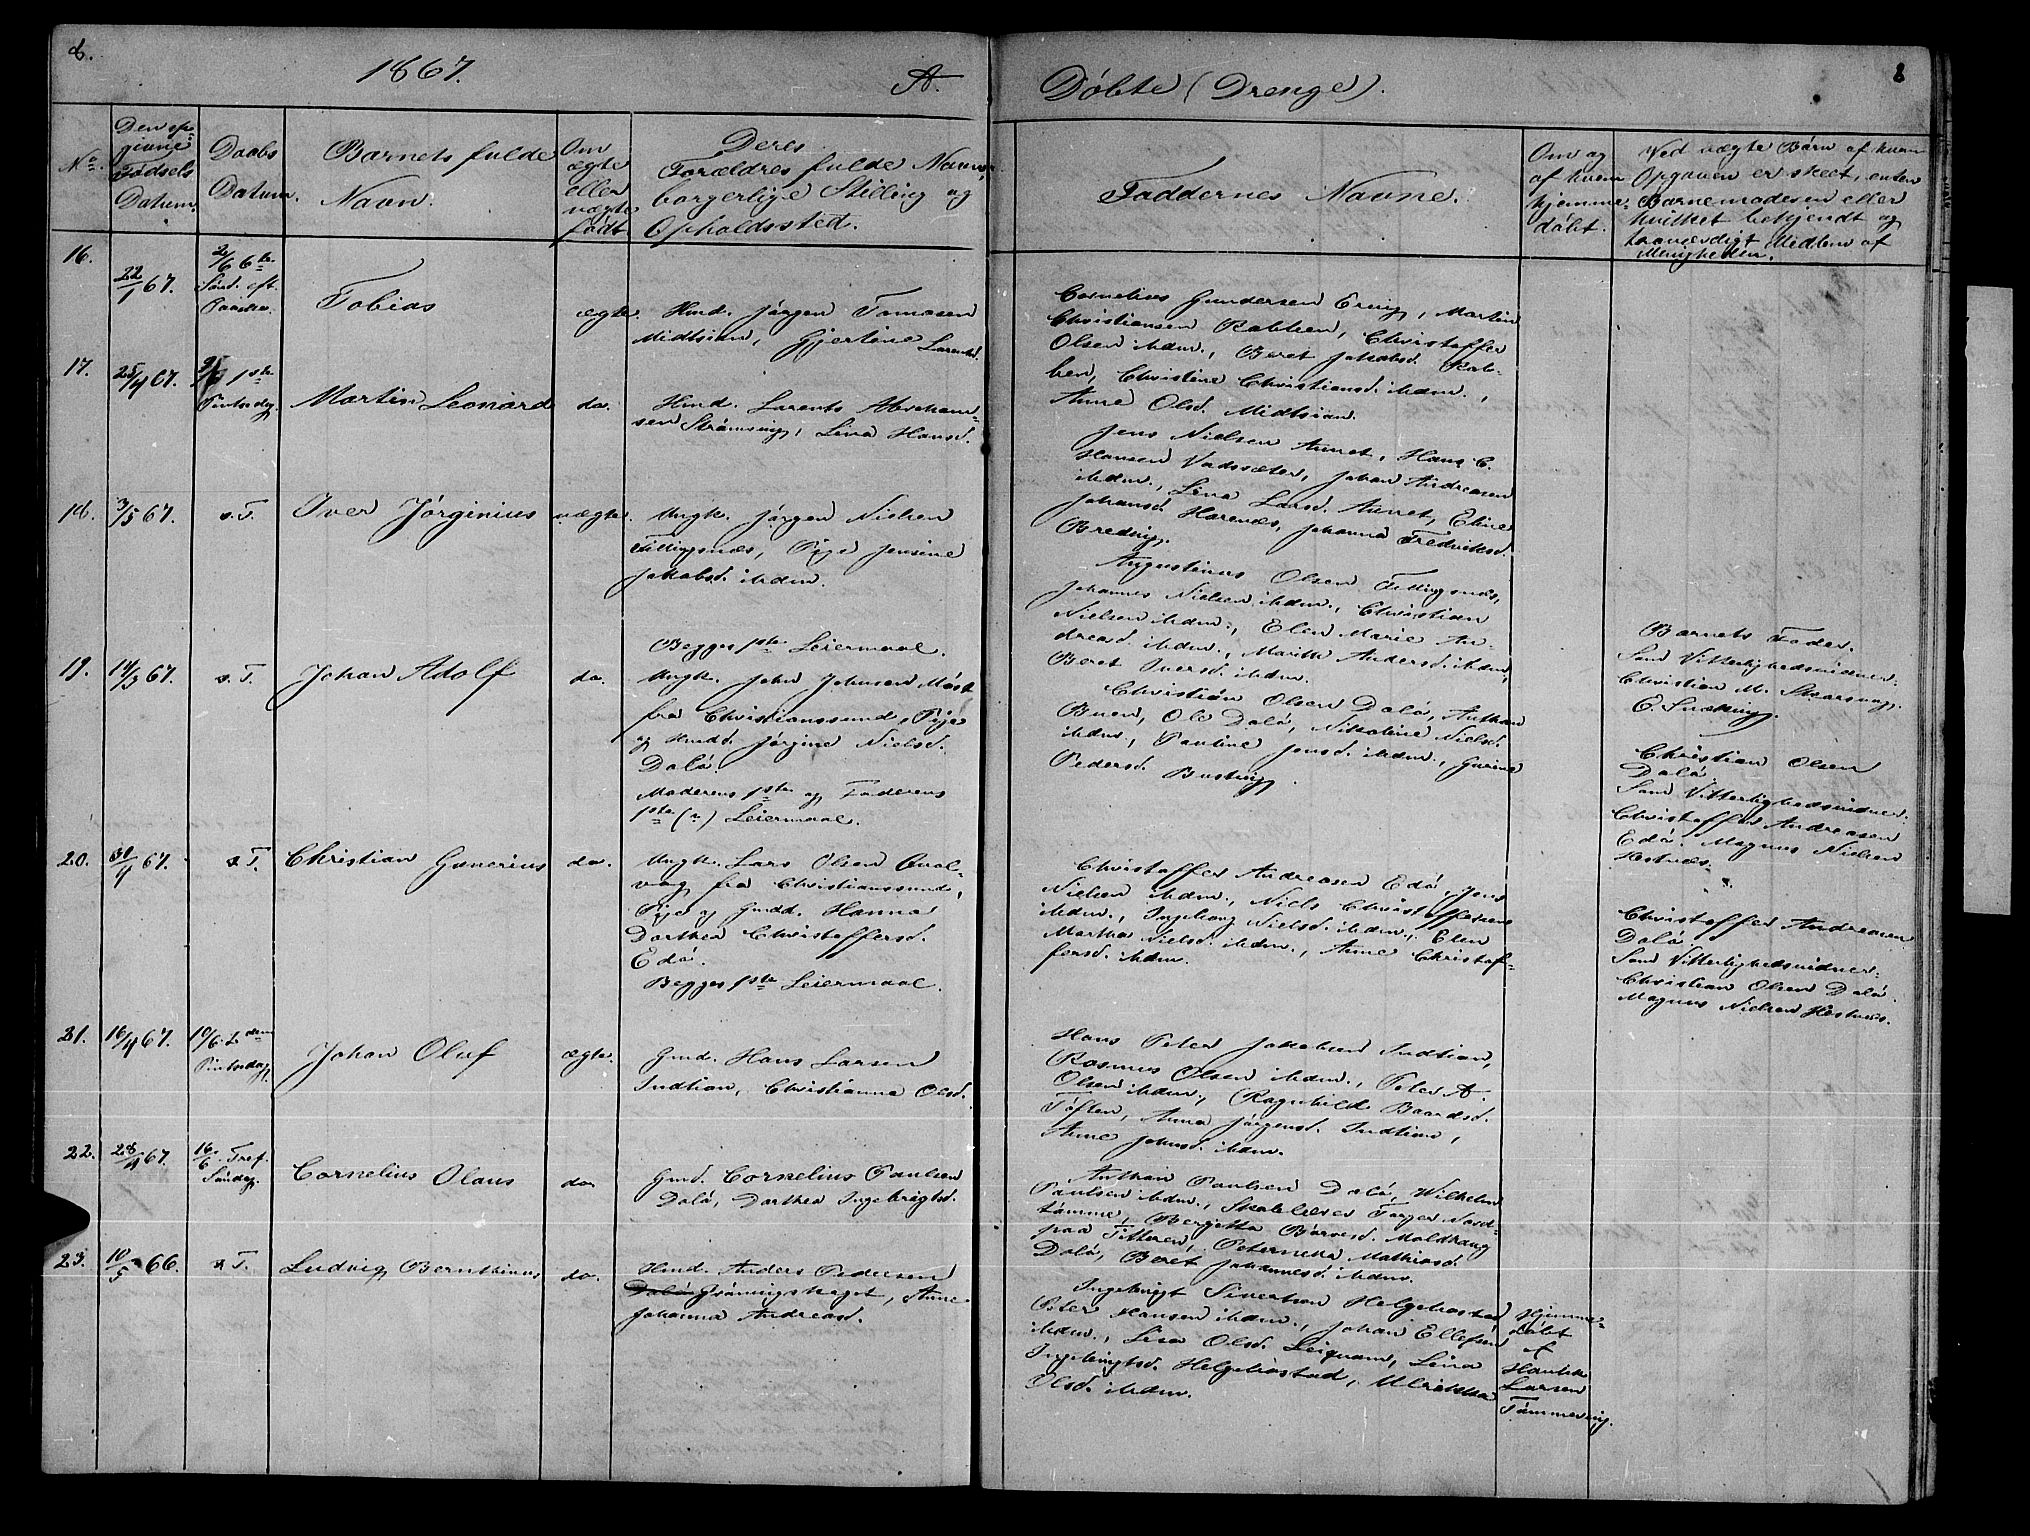 8.
1867.
A.
Döbte (Drenge).
8
No.
Den op-
givne
Födsels
Datum.
Daabs
Datum.
Barnets fulde
Navn.
Om
ægte
eller
uægte
födt.
Deres
Forældres fulde Navn,
borgerlige Stilling og
Opholdssted.
Faddernes Navne.
Om og
af hvem
hjemme-
döbt.
Ved uægte Börn af hvem
Opgaven er skeet, enten
Barnemoderen eller
hvilket bekjendt og
troværdigt Medlem af
Menigheden.
16.
22/1 67.
2/6 6te
Sönd. eft.
Paaske.
Tobias
ægte.
Hmd. Jörgen Tomasen
Midtsian, Gjertine Larsd.
Cornelius Gundersen Ering, Martin
Christiansen Rabben, Christoffer
Olsen ibdm., Beret Jakobsd. Rab-
ben, Christine Christiansd. ibdm.,
Anne Olsd. Midtsian.
17.
25/4 67.
9/6 1ste
Pintsedag.
Martin Leonard
do.
Hmd. Larents Abraham-
sen Strömsvig, Lina Hansd.
Jens Nielsen Aunet, Hans C.
Hansen Vadsæter, Johan Andreasen
ibdm., Lina Larsd. Aunet, Eline
Johansd. Havnæs, Johanna Fredriksd.
Bredvig.
18.
3/5 67.
s. T.
Iver Jörginius
uægte.
Ungk. Jörgen Nielsen
Fillingsnæs, Pige Jensine
Jakobsd. ibdm.
Begges 1ste Leiermaal.
Augustinus Olsen Fillingsnæs,
Johannes Nielsen ibdm., Christian
Nielsen ibdm., Elen Marie An-
dreasd. ibdm., Marith Andersd. ibdm.,
Beret Iversd. ibdm.
Barnets Fader.
Som Vitterlighedsvidner:
Christian M. Skarsvaag.
19.
14/3 67.
s. T.
Johan Adolf
do.
Ungk. John Johnsen Möst
fra Christianssund, Pige
og Hmdd. Jörgine Nielsd.
Dalö.
Moderens 1ste og Faderens
1ste (?) Leiermaal.
Christian Olsen Dalö, Anthon
Buen, Ole Dalö, Nikoline Nielsd.
ibdm., Pauline Jensd. ibdm., Gurine
Pedersd. Bustvig.
Christian Olsen
Dalö.
Som Vitterlighedsvidner:
Christoffer Andreasen
Edö. Magnus Nielsen
Hestnæs.
20.
30/4 67.
s. T.
Christian Gunerius
do.
Ungk. Lars Olsen Qval-
vaag fra Christianssund,
Pige og Gmdd. Hanna
Dorthea Christoffersd.
Edö.
Begges 1ste Leiermaal.
Christoffer Andreasen Edö, Jens
Nielsen ibdm., Niels Christoffersen
ibdm., Ingeborg Nielsd. ibdm., Elen
Martha Nielsd. ibdm., Anne Christof-
fersd. ibdm.
Christoffer Andreasen
Dalö.
Som Vitterlighedsvidner:
Christian Olsen Dalö.
Magnus Nielsen Hestnæs.
21.
16/4 67.
10/6 2den
Pintsedag.
Johan Oluf
ægte.
Gmd. Hans Larsen
Indtian, Christianna Olsd.
Hans Peter Jakobsen Indtian,
Rasmus Olsen ibdm., Peter A.
Olsen ibdm., Ragnhild Baardsd.
Töften, Anna Jörgensd. Indtian,
Anne Johnsd. ibdm.
22.
28/4 67.
16/6 Tref.
Söndag.
Cornelius Olaus
do.
Gmd. Cornelius Paulsen
Dalö, Dorthea Ingebrigtsd.
Anthon Paulsen Dalö, Wilhelm
Paulsen ibdm., Skolelærer Torger Nord-
tömme, Bergitta Börresd. Moldtang
paa Fitteren, Peternella Mathiasd.
Dalö, Beret Johannesd. ibdm.
23.
10/5 66.
s. T.
Ludvig Bernthinus
do.
Hmd. Anders Pedersen
Gröningshaget, Anne
Johanna Andreasd.
Ingebrigt Sivertsen Helgebostad,
Peter Hansen ibdm., Johan Ellefsen
ibdm., Lisa Olsd. Leiqvam, Lina
Ingebrigtsd. Helgebostad, Ulrikka
Olsd. ibdm.
Hjemme-
döbt
af
Havtik
Larsen
Tömmervig.